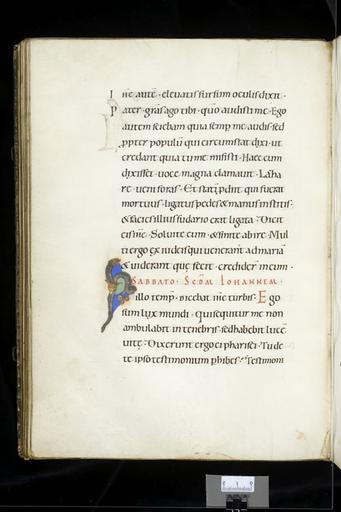 ihc autē · elevatis sursum oculis dixit ·
Pater · grās ago tibi · quō audisti me · Ego
autem sciebam quia semp me audis · sed
ppter populū qui circumstat dixi · ut
credant quia tu me misisti · Haec cum
dixisset · voce magna clamavit · Laza
re · veni foras · Et statī pdiit qui fuerat
mortuus · ligatus pedes & manus institis ·
& facies illius sudario erat ligata · Dicit
eis ihc · Solvite eum · & sinite abire · Mul
ti ergo ex iudeis qui venerant ad mariā
& viderant quę fecit · crediderūt in eum ·
SABBATO · SCDM IOHANNEM ·
In illo temp · dicebat ihc turbis · Ego
sum lux mundi · Qui sequitur me non
ambulabit in tenebris · sed habebit lucē
vitę · Dixerunt ergo ei pharisei · Tu de
te ipso testimonium phibes · Testimoni